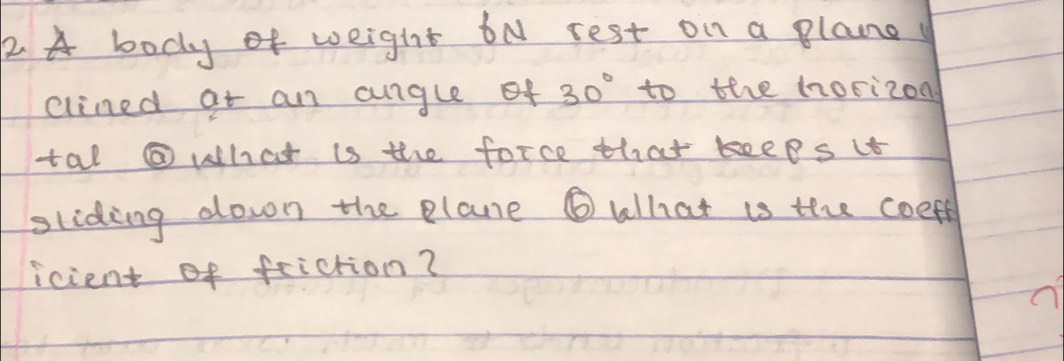 2. A body of weight 6N rest on a plane
clined at an angle of 30° to the horizon
tal ⓐ What is the force that keeps it
sliding down the plane ⓑ What is the coeff
icient of friction?